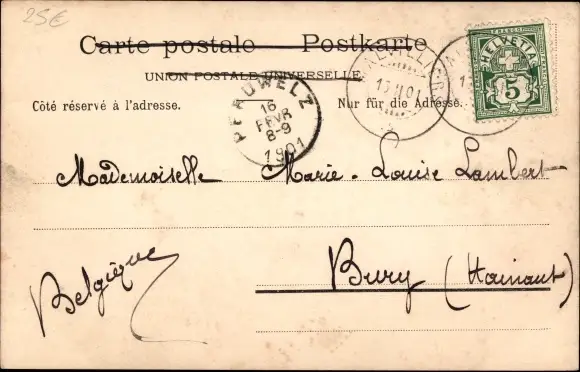 25€
Carte postale Postkarte
UNION POSTALE UNIVERSELLE
Côté réservé à l'adresse. Nur für die Adresse.
FRANCO
HELVETIA
5
PERUWELZ
16
FEVR
8-9
1901
Mademoiselle Marie-Louise Lambert
Bury (Hainaut)
Belgique